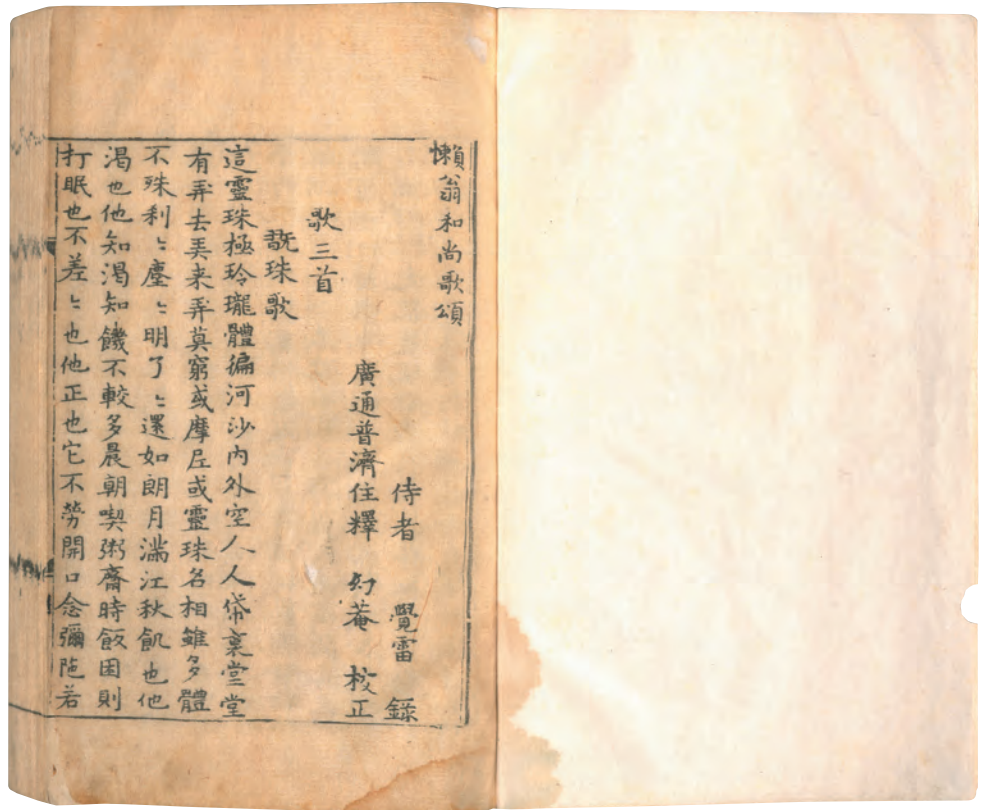 懶翁和尚歌頌
侍者 覺雷 錄
廣通普濟住釋 幻菴 校正
歌三首
翫珠歌
這靈珠極玲瓏體徧河沙內外空人人帒裏堂堂
有弄去弄来弄莫窮或摩尼或靈珠名相雖多體
不殊刹〻塵〻明了〻還如朗月滿江秋飢也他
渴也他知渴知饑不較多晨朝喫粥齋時飯困則
打眠也不差〻也他正也它不勞開口念彌陁若